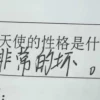 天使的性格是什
非常的坏。